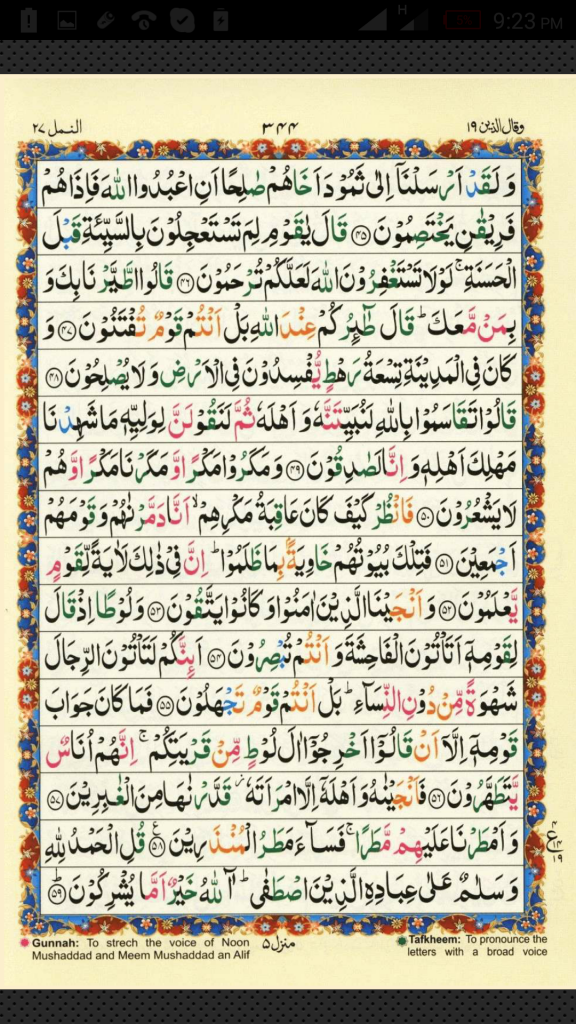 H 9:23 PM
وقال الذين ١٩
٣٤٤
النمل ٢٧
وَ لَقَدْ اَرْسَلْنَاۤ اِلٰى ثَمُوْدَ اَخَاهُمْ صٰلِحًا اَنِ اعْبُدُوا اللّٰهَ فَاِذَا هُمْ
فَرِيْقٰنِ يَخْتَصِمُوْنَ ﴿۴۵﴾ قَالَ يٰقَوْمِ لِمَ تَسْتَعْجِلُوْنَ بِالسَّيِّئَةِ قَبْلَ
الْحَسَنَةِ ۚ لَوْلَا تَسْتَغْفِرُوْنَ اللّٰهَ لَعَلَّكُمْ تُرْحَمُوْنَ ﴿۴۶﴾ قَالُوا اطَّيَّرْنَا بِكَ وَ
بِمَنْ مَّعَكَ ؕ قَالَ طٰٓئِرُكُمْ عِنْدَ اللّٰهِ بَلْ اَنْتُمْ قَوْمٌ تُفْتَنُوْنَ ﴿۴۷﴾ وَ
كَانَ فِى الْمَدِيْنَةِ تِسْعَةُ رَهْطٍ يُّفْسِدُوْنَ فِى الْاَرْضِ وَ لَا يُصْلِحُوْنَ ﴿۴۸﴾
قَالُوْا تَقَاسَمُوْا بِاللّٰهِ لَنُبَيِّتَنَّهٗ وَ اَهْلَهٗ ثُمَّ لَنَقُوْلَنَّ لِوَلِيِّهٖ مَا شَهِدْنَا
مَهْلِكَ اَهْلِهٖ وَ اِنَّا لَصٰدِقُوْنَ ﴿۴۹﴾ وَ مَكَرُوْا مَكْرًا وَّ مَكَرْنَا مَكْرًا وَّ هُمْ
لَا يَشْعُرُوْنَ ﴿۵۰﴾ فَانْظُرْ كَيْفَ كَانَ عَاقِبَةُ مَكْرِهِمْ ۙ اَنَّا دَمَّرْنٰهُمْ وَ قَوْمَهُمْ
اَجْمَعِيْنَ ﴿۵۱﴾ فَتِلْكَ بُيُوْتُهُمْ خَاوِيَةًۢ بِمَا ظَلَمُوْا ؕ اِنَّ فِىْ ذٰلِكَ لَاٰيَةً لِّقَوْمٍ
يَّعْلَمُوْنَ ﴿۵۲﴾ وَ اَنْجَيْنَا الَّذِيْنَ اٰمَنُوْا وَ كَانُوْا يَتَّقُوْنَ ﴿۵۳﴾ وَ لُوْطًا اِذْ قَالَ
لِقَوْمِهٖۤ اَتَاْتُوْنَ الْفَاحِشَةَ وَ اَنْتُمْ تُبْصِرُوْنَ ﴿۵۴﴾ اَئِنَّكُمْ لَتَاْتُوْنَ الرِّجَالَ
شَهْوَةً مِّنْ دُوْنِ النِّسَآءِ ؕ بَلْ اَنْتُمْ قَوْمٌ تَجْهَلُوْنَ ﴿۵۵﴾ فَمَا كَانَ جَوَابَ
قَوْمِهٖۤ اِلَّاۤ اَنْ قَالُوْۤا اَخْرِجُوْۤا اٰلَ لُوْطٍ مِّنْ قَرْيَتِكُمْ ۚ اِنَّهُمْ اُنَاسٌ
يَّتَطَهَّرُوْنَ ﴿۵۶﴾ فَاَنْجَيْنٰهُ وَ اَهْلَهٗۤ اِلَّا امْرَاَتَهٗ ؗ قَدَّرْنٰهَا مِنَ الْغٰبِرِيْنَ ﴿۵۷﴾
وَ اَمْطَرْنَا عَلَيْهِمْ مَّطَرًا ۚ فَسَآءَ مَطَرُ الْمُنْذَرِيْنَ ﴿۵۸﴾ ع قُلِ الْحَمْدُ لِلّٰهِ
وَ سَلٰمٌ عَلٰى عِبَادِهِ الَّذِيْنَ اصْطَفٰى ؕ آٰللّٰهُ خَيْرٌ اَمَّا يُشْرِكُوْنَ ﴿۵۹﴾
۴ ع ۱۴ ۱۹
Gunnah: To strech the voice of Noon
Mushaddad and Meem Mushaddad an Alif
منزل ٥
Tafkheem: To pronounce the
letters with a broad voice